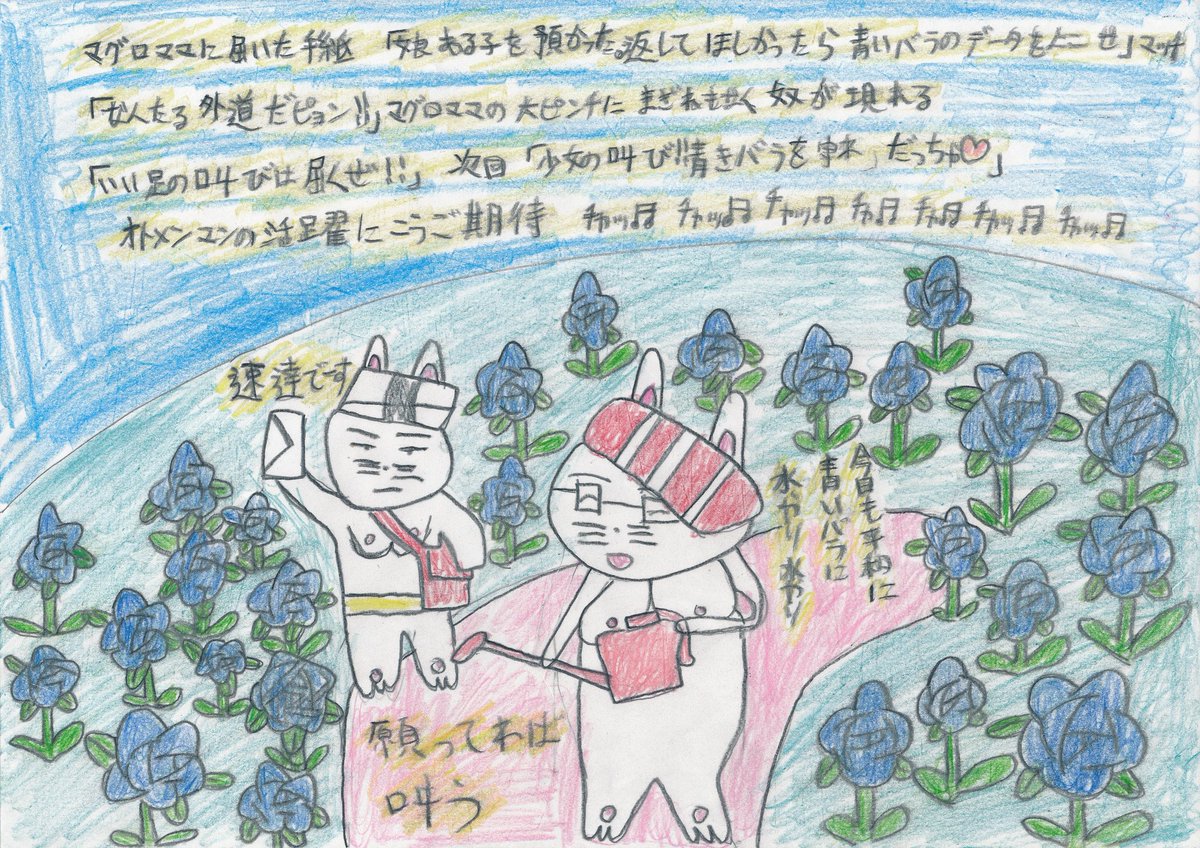 マグロママに届いた手紙 「娘ある子を預かった。返してほしかったら青いバラのデータをよこせ」マッチ
「なんたる外道だピョン!!」マグロママの大ピンチに まぎれもなく 奴が現れる
「いい足の叫びは届くぜ!!」 次回「少女の叫び!!青きバラを」だっちゃ♡」
オトメンマンの活躍にこうご期待 チャッ♬ チャッ♬ チャッ♬ チャ♬ チャ♬ チャッ♬ チャッ♬
速達です
今日も平和に
青いバラに
水やり水やり
願ってれば
叫う